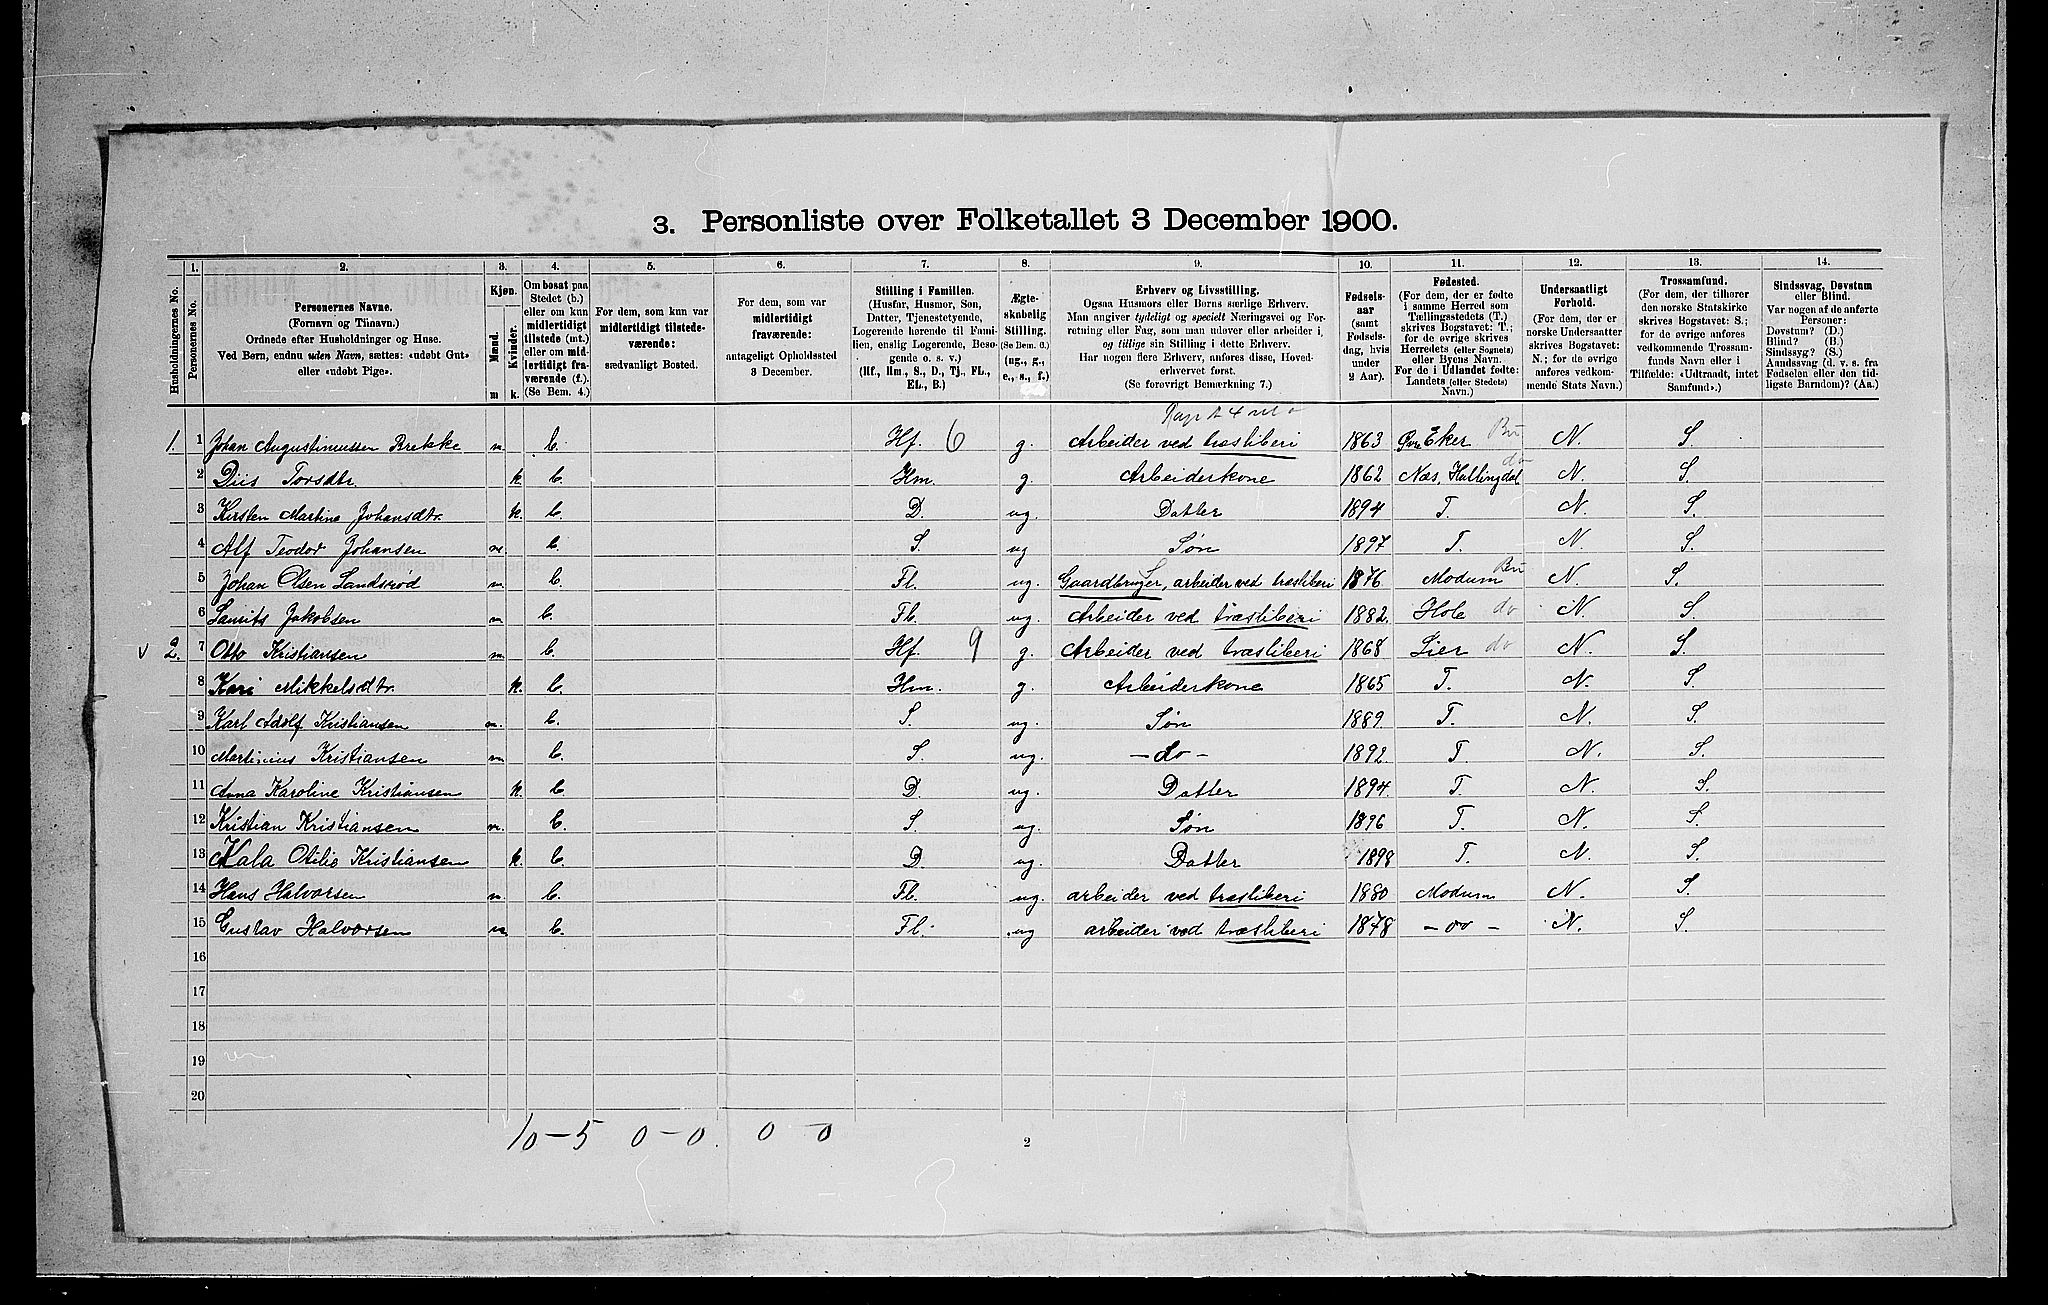 3. Personliste over Folketallet 3 December 1900.
Husholdningernes No.
1. Personernes No.
2. Personernes Navne. (Fornavn og Tilnavn.) Ordnede efter Husholdninger og Huse. Ved Børn, endnu uden Navn, sættes: «udøbt Gut» eller «udøbt Pige».
3. Kjøn. Mænd. m Kvinder. k.
4. Om bosat paa Stedet (b.) eller om kun midlertidigt tilstede (mt.) eller om midlertidigt fraværende (f.) (Se Bem. 4.)
5. For dem, som kun var midlertidigt tilstedeværende: sædvanligt Bosted.
6. For dem, som var midlertidigt fraværende: antageligt Opholdssted 3 December.
7. Stilling i Familien. (Husfar, Husmor, Søn, Datter, Tjenestetyende, Logerende hørende til Familien, enslig Logerende, Besøgende o. s. v.) (Hf., Hm., S., D., Tj., FL., EL., B.)
8. Ægteskabelig Stilling. (Se Bem. 6.) (ug., g., e., s., f.)
9. Erhverv og Livsstilling. Ogsaa Husmors eller Børns særlige Erhverv. Man angiver tydeligt og specielt Næringsvei og Forretning eller Fag, som man udøver eller arbeider i, og tillige sin Stilling i dette Erhverv. Har nogen flere Erhverv, anføres disse, Hovederhvervet først. (Se forøvrigt Bemerkning 7.)
10. Fødselsaar (samt Fødselsdag, hvis under 2 Aar).
11. Fødested. (For dem, der er fødte i samme Herred som Tællingsstedets (T.) skrives Bogstavet: T.; for de øvrige skrives Herredets (eller Sognets) eller Byens Navn. For de i Udlandet fødte: Landets (eller Stedets) Navn.)
12. Undersaatligt Forhold. (For dem, der er norske Undersaatter skrives Bogstavet: N.; for de øvrige anføres vedkommende Stats Navn.)
13. Trossamfund. (For dem, der tilhører den norske Statskirke skrives Bogstavet: S.; for de øvrige anføres vedkommende Trossamfunds Navn eller i Tilfælde: «Udtraadt, intet Samfund».)
14. Sindssvag, Døvstum eller Blind. Var nogen af de anførte Personer: Døvstum? (D.) Blind? (B.) Sindssyg? (S.) Aandssvag (d. v. s. fra Fødselen eller den tidligste Barndom)? (Aa.)
1. 1 Johan Augustinussen Brekke m. b. Hf. 6 g. Arbeider ved træsliberi 1863 Eker Bu N. S.
2 Diis Torsdtr. k. b. Hm. g. Arbeiderkone 1862 Næs, Hallingdal do N. S.
3 Kirsten Martina Johansdtr. k. b. D. ug. Datter 1894 T. N. S.
4 Alf Teodor Johansen m. b. S. ug Søn 1897 T. N. S.
5 Johan Olsen Landsrød m. b. Fl. ug. Gaardbruger S, arbeider ved træsliberi 1876 Modum Bu N. S.
6 Laurits Jakobsen m b. Fl. ug. Arbeider ved træsliberi 1882. Hole do N. S.
v 2. 7 Otto Kristiansen m. b. Hf. 9 g. Arbeider ved træsliberi 1868 Lier do N. S.
8 Kari Mikkelsdtr. k. b. Hm. g. Arbeiderkone 1865 T. N. S.
9 Karl Adolf Kristiansen m. b. S. ug. Søn 1889. T. N. S.
10 Martinius Kristiansen m b. S. ug. - do - 1892. T N. S.
11 Anna Karoline Kristiansen k. b. D. ug. Datter 1894. T. N. S.
12 Kristian Kristiansen m. b. S. ug. Søn 1896 T. N. S.
13 Otilie Kristiansen k. b. D ug. Datter 1898 T. N. S.
14 Hans Halvorsen m b. Fl. ug. arbeider ved træsliberi 1880 Modum N. S.
15 Gustav Halvorsen m b. Fl. ug arbeider ved træsliberi 1878 - do - N. S.
16
17
18
19
20
10 - 5 0 - 0. 0 - 0
2